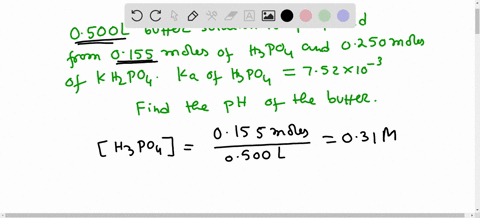 0.500L buffer solution is prepared
from 0.155 moles of H₃PO₄ and 0.250 moles
of KH₂PO₄. Ka of H₃PO₄ = 7.52×10⁻³
Find the pH of the buffer.
[H₃PO₄] = 0.155 moles / 0.500 L = 0.31 M